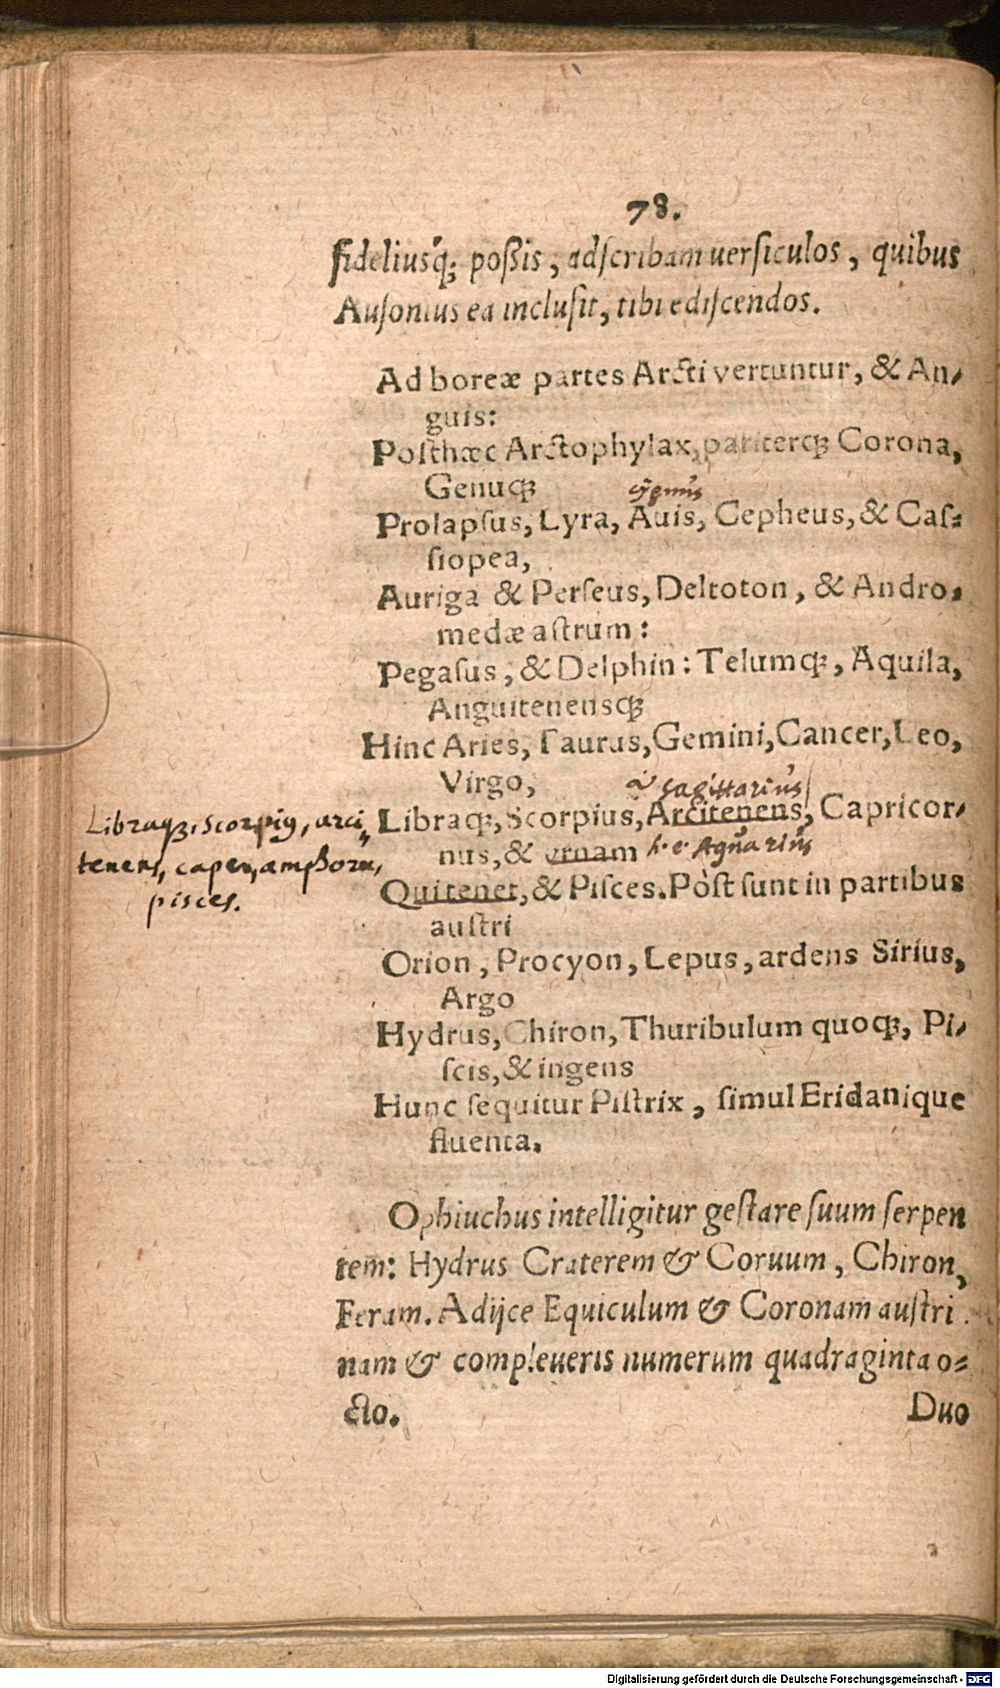 78.
fideliusq́; poßis, adſcribam uerſiculos, quibus
Auſonius ea incluſit, tibi ediſcendos.
Ad boreæ partes Arcti vertuntur, & An-
guis:
Poſthæc Arctophylax, pariterq; Corona,
Genuq;
cÿgnus
Prolapſus, Lyra, Avis, Cepheus, & Caſ-
ſiopea,
Auriga & Perſeus, Deltoton, & Andro-
medæ aſtrum:
Pegaſus, & Delphin: Telumq;, Aquila,
Anguitenensq;
Hinc Aries, Taurus, Gemini, Cancer, Leo,
Virgo,
sagittariús
Libraq;, Scorpius, Arcitenens, Capricor-
nus, & urnam h. e. Aquariús
Libraq;, Scorpig, arci
tenens, caper, amphora,
pisces.
Qui tenet, & Piſces. Pòſt sunt in partibus
auſtri
Orion, Procyon, Lepus, ardens Sirius,
Argo
Hydrus, Chiron, Thuribulum quoq;, Pi-
ſcis, & ingens
Hunc ſequitur Piſtrix, ſimul Eridanique
fluenta.
Ophiuchus intelligitur geſtare ſuum ſerpen
tem: Hydrus Craterem & Coruum, Chiron,
Feram. Adijce Equiculum & Coronam auſtri
nam & compleueris numerum quadraginta o-
cto.
Duo
Digitalisierung gefördert durch die Deutsche Forschungsgemeinschaft - DFG